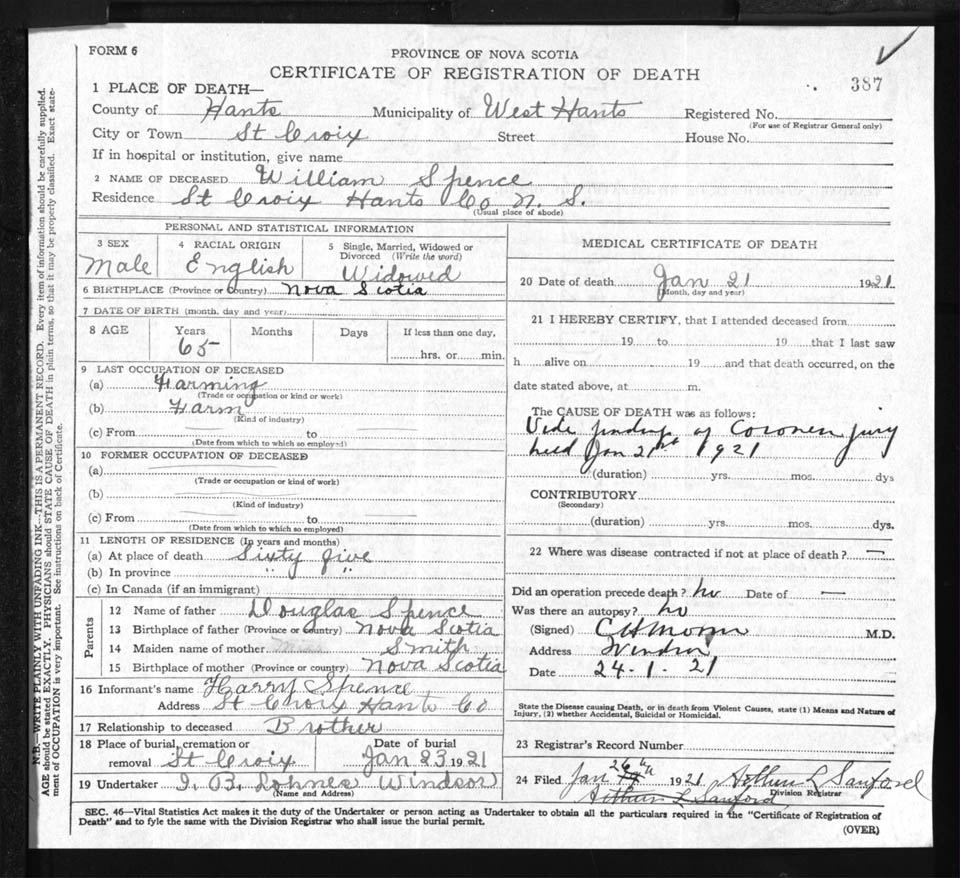 FORM 6
PROVINCE OF NOVA SCOTIA
CERTIFICATE OF REGISTRATION OF DEATH
387
1 PLACE OF DEATH—
County of Hants Municipality of West Hants Registered No.
(For use of Registrar General only)
City or Town St Croix Street House No.
If in hospital or institution, give name
2 NAME OF DECEASED William Spence
Residence St Croix Hants Co N. S.
(Usual place of abode)
PERSONAL AND STATISTICAL INFORMATION
3 SEX 4 RACIAL ORIGIN 5 Single, Married, Widowed or
Divorced (Write the word)
Male English Widowed
6 BIRTHPLACE (Province or country) Nova Scotia
7 DATE OF BIRTH (month, day and year)
8 AGE Years Months Days If less than one day,
65 hrs. or min.
9 LAST OCCUPATION OF DECEASED
(a) Farming
(Trade or occupation or kind or work)
(b) Farm
(Kind of industry)
(c) From to
(Date from which to which so employed)
10 FORMER OCCUPATION OF DECEASED
(a)
(Trade or occupation or kind of work)
(b)
(Kind of industry)
(c) From to
(Date from which to which so employed)
11 LENGTH OF RESIDENCE (In years and months)
(a) At place of death Sixty five
(b) In province " "
(c) In Canada (if an immigrant)
Parents
12 Name of father Douglas Spence
13 Birthplace of father (Province or country) Nova Scotia
14 Maiden name of mother Smith
15 Birthplace of mother (Province or country) Nova Scotia
16 Informant's name Harry Spence
Address St Croix Hants Co
17 Relationship to deceased Brother
18 Place of burial, cremation or Date of burial
removal St Croix Jan 23 1921
19 Undertaker I. B. Lohnes Windsor
(Name and Address)
MEDICAL CERTIFICATE OF DEATH
20 Date of death Jan 21 1921
(Month, day and year)
21 I HEREBY CERTIFY, that I attended deceased from
19 to 19 that I last saw
h alive on 19 and that death occurred, on the
date stated above, at m.
The CAUSE OF DEATH was as follows:
Vide findings of Coroners jury
held Jan 21st 1921
(duration) yrs. mos. dys
CONTRIBUTORY
(Secondary)
(duration) yrs. mos. dys.
22 Where was disease contracted if not at place of death? —
Did an operation precede death? no Date of —
Was there an autopsy? no
(Signed) M.D.
Address Windsor
Date 24-1-21
State the Disease causing Death, or in death from Violent Causes, state (1) Means and Nature of
Injury, (2) whether Accidental, Suicidal or Homicidal.
23 Registrar's Record Number
24 Filed Jan 26th 1921 Arthur L Sanford
Division Registrar
Arthur L Sanford
SEC. 46—Vital Statistics Act makes it the duty of the Undertaker or person acting as Undertaker to obtain all the particulars required in the "Certificate of Registration of
Death" and to fyle the same with the Division Registrar who shall issue the burial permit.
(OVER)
N.B.—WRITE PLAINLY WITH UNFADING INK—THIS IS A PERMANENT RECORD. Every item of information should be carefully supplied.
AGE should be stated EXACTLY. PHYSICIANS should STATE CAUSE OF DEATH in plain terms, so that it may be properly classified. Exact state-
ment of OCCUPATION is very important. See instructions on back of Certificate.